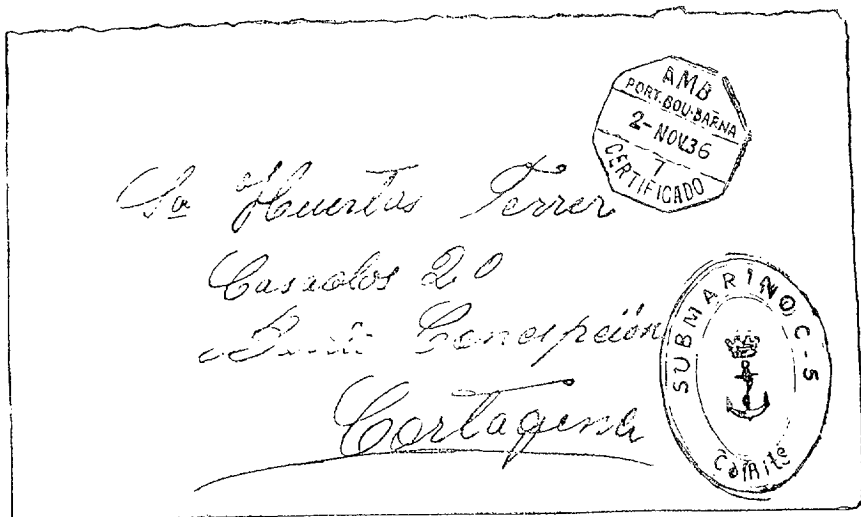 AMB
PORT-BOU-BARNA
2-NOV36
7
CERTIFICADO
Sª Huertas Ferrer
Casados 20
Concepción
Cartagena
SUBMARINO C-5
Comité